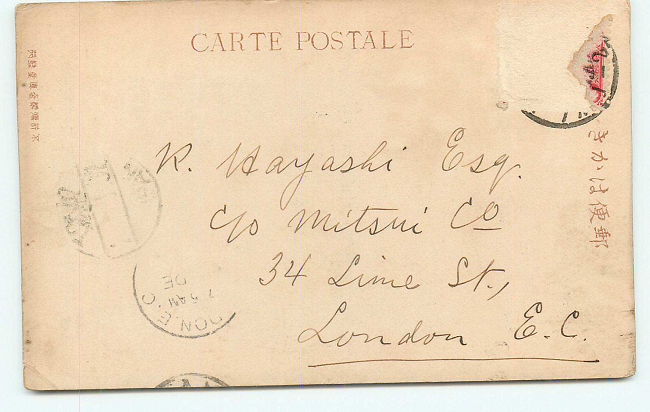 CARTE POSTALE
郵便はかき
K. Hayashi Esq.
c/o Mitsui Co
34 Lime St.,
London E.C.
DON. E.C
7.5AM
DE